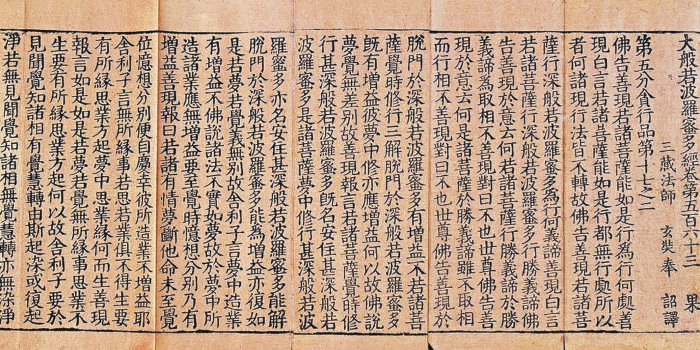 大般若波羅蜜多經卷第五百六十三　果
三藏法師　玄奘奉　詔譯
第五分貪行品第十七之二
佛告善現若諸菩薩能如是行為行何處善
現白言若諸菩薩能如是行都無行處所以
者何諸現行法皆不轉故佛告善現若諸菩
薩行深般若波羅蜜多為行何諦善現白言
若諸菩薩行深般若波羅蜜多行勝義諦佛
告善現於意云何若諸菩薩行勝義諦於勝
義諦為取相不善現對曰不也世尊佛告善
現於意云何是諸菩薩於勝義諦雖不取相
而行相不善現對曰不也世尊佛告善現
脫門於深般若波羅蜜多有增益不若諸菩
薩覺時修行三解脫門於深般若波羅蜜多
既有增益彼夢中修亦應增益何以故佛說
夢覺無差別故善現報言若諸菩薩覺時修
行甚深般若波羅蜜多既名安住甚深般若
波羅蜜多是諸菩薩夢中修行甚深般若波
羅蜜多亦名安住甚深般若波羅蜜多三解
脫門於深般若波羅蜜多能為增益亦復如
是若夢若覺義無別故舍利子言夢中造業
有增益不佛說諸法不實如夢故於夢中所
造諸業應無增益要至覺時憶想分別乃有
增益善現報曰若諸有情夢斷他命未至覺
位憶想分別便自慶幸彼所造業不增益耶
舍利子言無所緣事若思若業俱不得生要
有所緣思業方起夢中思業緣何而生善現
報言如是如是若夢若覺無所緣事思業不
生要有所緣思業方起何以故舍利子要於
見聞覺知諸相有覺慧轉由斯起染或復起
淨若無見聞覺知諸相無覺慧轉亦無染淨